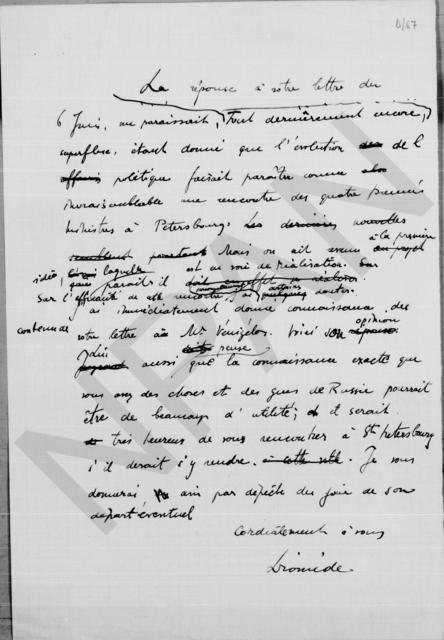 B/67
La réponse à votre lettre du
6 Juin, me paraissait, tout dernièrement encore,
superflue, étant donné que l'évolution de l'
politique faisait paraître comme
invraisemblable une rencontre des quatre premiers
ministres à Petersbourg. Les dernières nouvelles
semblent pourtant Mais on est revenu à la première
idée, laquelle est en voie de réalisation.
paraît-il
Sur l' de rencontre, j'ai quelques doutes.
ai immédiatement donné connaissance du
contenu de votre lettre à Mr Venizélos. Voici son opinion
Lui pense aussi que la connaissance exacte que
vous avez des choses et des gens de Russie pourrait
être de beaucoup d'utilité; et serait
très heureux de vous rencontrer à St Petersbourg
s'il devait s'y rendre. à cette ville. Je vous
donnerai avis par dépêche du jour de son
départ éventuel
Cordialement à vous
Diomède